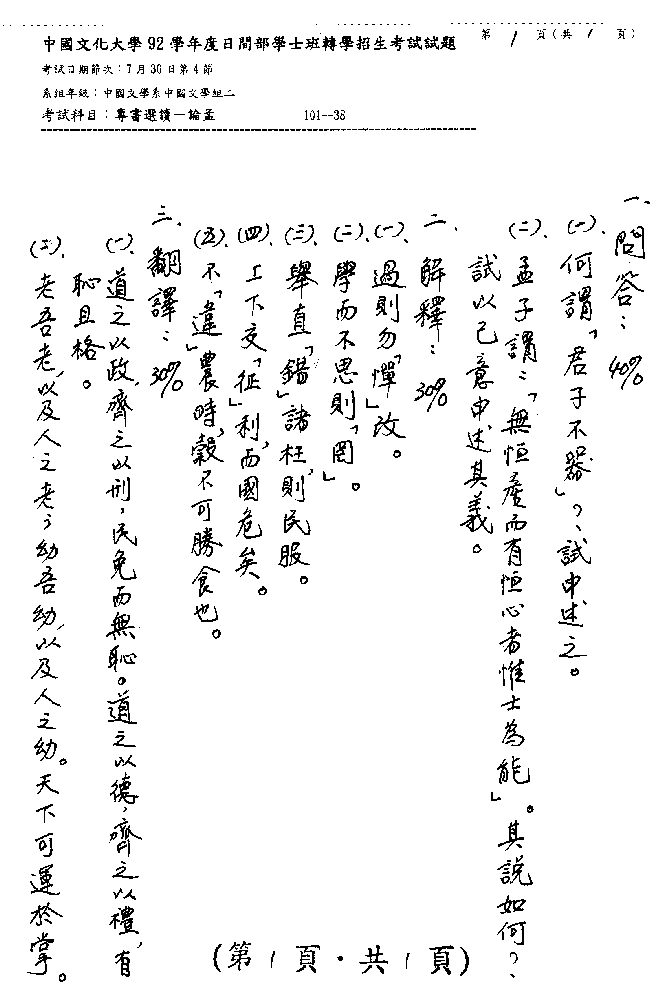 中國文化大學92學年度日間部學士班轉學招生考試試題
第1頁(共1頁)
考試日期節次：7月30日第4節
系組年級：中國文學系中國文學組二
考試科目：專書選讀—論孟 101--38
一、問答：40%
(一)、何謂「君子不器」？試申述之。
(二)、孟子謂：「無恒產而有恒心者惟士為能」。其說如何？
試以己意申述其義。
二、解釋：30%
(一)、過則勿「憚」改。
(二)、學而不思則「罔」。
(三)、舉直「錯」諸枉，則民服。
(四)、上下交「征」利，而國危矣。
(五)、不「違」農時，穀不可勝食也。
三、翻譯：30%
(一)、道之以政，齊之以刑，民免而無恥。道之以德，齊之以禮，有
恥且格。
(二)、老吾老，以及人之老；幼吾幼，以及人之幼。天下可運於掌。
(第1頁·共1頁)